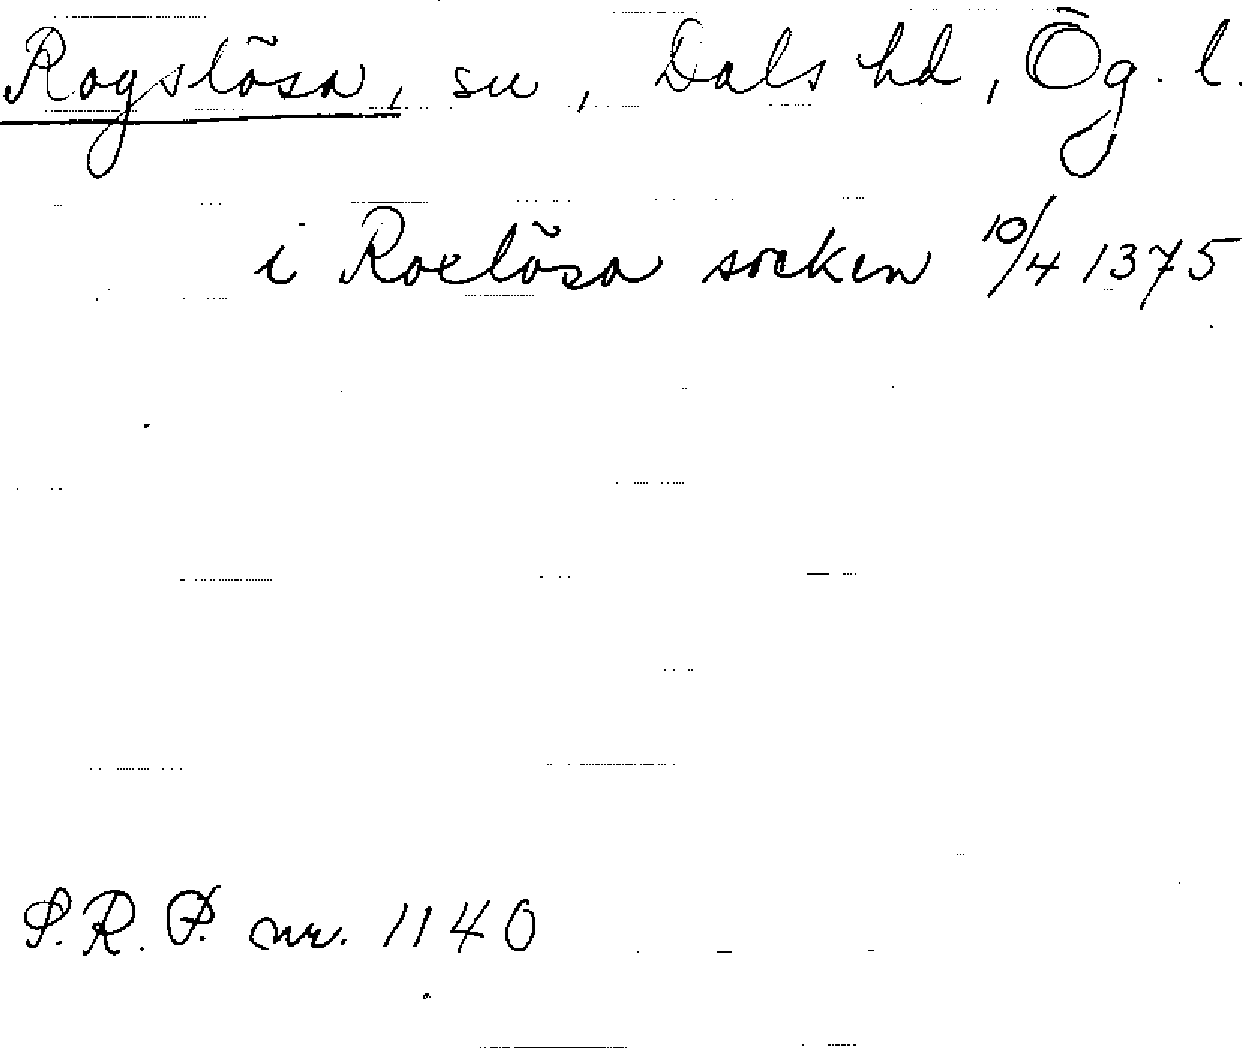 Rogslösa, sn, Dals hd, Ög. l.
i Roelösa socken 10/4 1375
S.R.P. nr. 1140